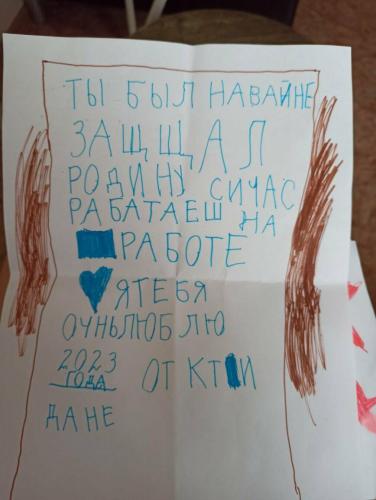 ТЫ БЫЛ НАВАЙНЕ
ЗАЩЩАЛ
РОДИНУ СИЧАС
РАБАТАЕШ НА
РАБОТЕ
ЯТЕБЯ
ОЧНЬЛЮБЛЮ
2023 ОТ КТ И
ГОДА
ДАНЕ